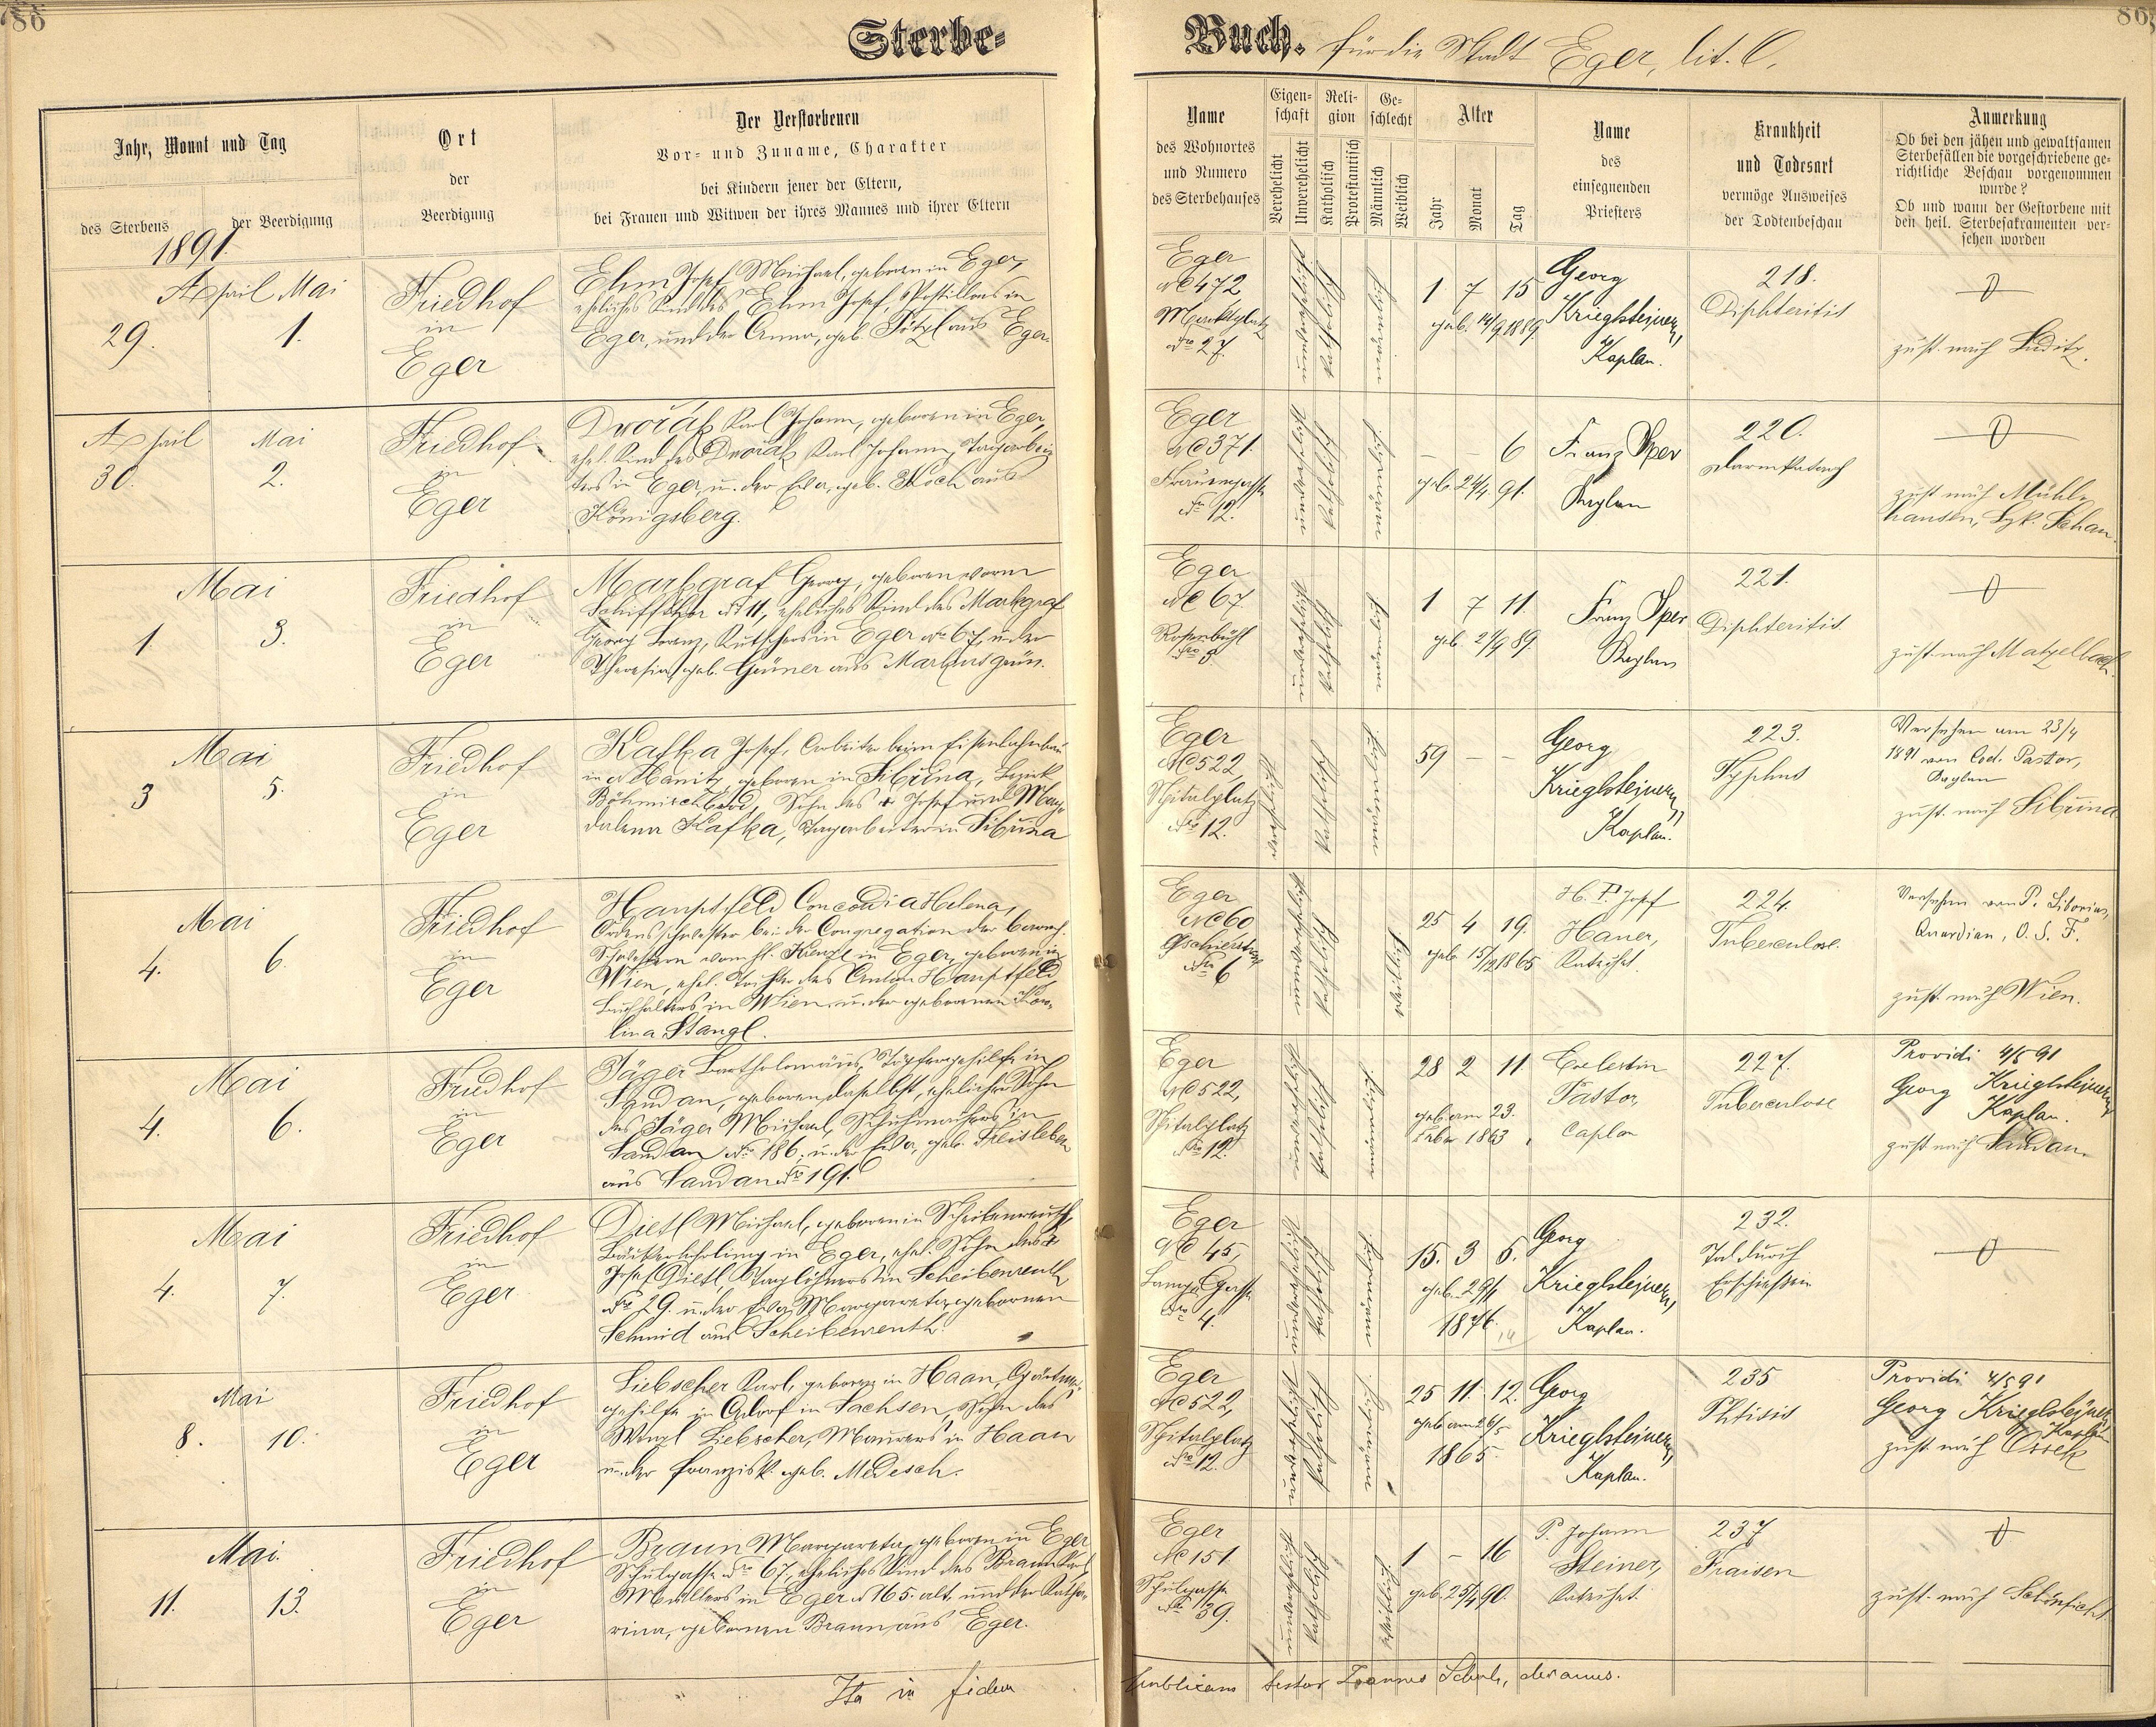 86
Sterbe-
Buch. für die Stadt Eger, lit. C.
86
Jahr, Monat und Tag
des Sterbens
der Beerdigung
Ort
der
Beerdigung
Der Verstorbenen
Vor- und Zuname, Charakter
bei Kindern jener der Eltern,
bei Frauen und Witwen der ihres Mannes und ihrer Eltern
Name
des Wohnortes
und Numero
des Sterbehauses
Eigen-
schaft
Verehelicht
Unverehelicht
Reli-
gion
Katholisch
Protestantisch
Ge-
schlecht
Männlich
Weiblich
Alter
Jahr
Monat
Tag
Name
des
einsegnenden
Priesters
Krankheit
und Todesart
vermöge Ausweises
der Todtenbeschau
Anmerkung
Ob bei den jähen und gewaltsamen
Sterbefällen die vorgeschriebene ge-
richtliche Beschau vorgenommen
wurde?
Ob und wann der Gestorbene mit
den heil. Sterbesakramenten ver-
sehen worden
1891.
April Mai
29. 1.
Friedhof
in
Eger
Ehm Josef Michael, geboren in Eger,
eheliches Kind des Ehm Josef, Postillons in
Eger, und der Anna, geb. aus Eger.
Eger
NC 472
Marktplatz
No 27.
unverehelicht
katholisch
männlich
1 7 15
geb. 14/9 1889.
Georg
Krieglsteiner,
Kaplan.
218.
Diphteritis
0
zust. nach Luditz.
April Mai
30. 2.
Friedhof
in
Eger
Dvořák Karl Johann, geboren in Eger,
ehel. Kind des Dvořák Karl Johann, Tagarbei-
ters in Eger, u. der Eva, geb. Koch aus
Königsberg.
Eger
NC 371.
Frauengasse
No 12.
unverehelicht
katholisch
männlich
- - 6
geb. 24/4 91.
Franz
Kaplan
220.
Darmkatarrh
0
zust. nach Mühl-
hausen,
Mai
1 3.
Friedhof
in
Eger
Markgraf Georg, geboren vorm
Schiffthor No 11, eheliches Kind des Markgraf
Georg Lorenz, Kutschers in Eger No 67, u. der
Theresia, geb. Grüner aus Markusgrün.
Eger
NC 67.
Rosenbühl
No 5
unverehelicht
katholisch
männlich
1 7 11.
geb. 21/9 89.
Franz
Kaplan
221.
Diphteritis
0
zust. nach Matzelbach.
Mai
3 5.
Friedhof
in
Eger
Kafka Josef, Arbeiter beim Eisenbahnbau
in geboren in Bezirk
Böhmischbrod, Sohn des † Josef und Mag-
dalena Kafka, Tagarbeiter in
Eger
NC 522,
Spitalplatz
No 12.
verehelicht
katholisch
männlich
59 - -
Georg
Krieglsteiner,
Kaplan.
223.
Typhus
Versehen am 23/4
1891 von Cöl. Pastor,
Kaplan
zust. nach
Mai
4. 6.
Friedhof
in
Eger
Hauptfeld Concordia Helena,
Ordensschwester bei der Congregation der barmh.
Schwestern vom hl. Kreuze in Eger, geboren in
Wien, ehel. Tochter des Anton Hauptfeld,
Buchhalters in Wien u. der gebornen Karo-
lina Stangl.
Eger
NC 60
No 6
unverehelicht
katholisch
weiblich
25 4 19.
geb. 15/12 1865
H. P. Josef
Hauer,
Katechet.
224.
Tuberculose.
Versehen von P. Liborius,
Quardian, O. S. F.
zust. nach Wien.
Mai
4. 6.
Friedhof
in
Eger
Jäger Bartholomäus, Töpfergehilfe in
Sandau, geboren daselbst, ehelicher Sohn
des Jäger Michael, Schuhmachers in
Sandau No 186, u. der Eva, geb. Theisleben
aus Sandau No 191.
Eger
NC 522,
Spitalplatz
No 12.
unverehelicht
katholisch
männlich
28 2 11
geb. am 23.
Feber 1863
Coelestin
Pastor,
Caplan
227.
Tuberculose
Providi 4/5 91
Georg Krieglsteiner,
Kaplan.
zust. nach Sandau.
Mai
4. 7.
Friedhof
in
Eger
Dietl Michael, geboren in Scheibenreuth,
Bäckerlehrling in Eger, ehel. Sohn des †
Josef Dietl, Taglöhners in Scheibenreuth
No 29. u. der Eva Margareta, gebornen
Schmid aus Scheibenreuth.
Eger
NC 45,
Lange Gasse
No 4.
unverehelicht
katholisch
männlich
15. 3 5.
geb. 29/1
1876.
Georg
Krieglsteiner,
Kaplan.
232.
Tod durch
Erschießen
0
Mai
8. 10.
Friedhof
in
Eger
Liebscher Karl, geboren in Haan, Gärtner-
gehilfe in Adorf in Sachsen, Sohn des
Wenzl Liebscher, Maurers in Haan
u. der Franziska geb. Medesch.
Eger
NC 522,
Spitalplatz
No 12.
unverehelicht
katholisch
männlich
25 11 12.
geb. am 26/5
1865.
Georg
Krieglsteiner,
Kaplan.
235
Phtisis
Providi 4/5 91
Georg Krieglsteiner,
Kaplan
zust. nach Ossek
Mai.
11. 13.
Friedhof
in
Eger
Braun Margareta, geboren in Eger
Schulgasse No 67, eheliches Kind des Braun Karl,
Müllers in Eger No 165. alt, und der Katha-
rina, gebornen Braun aus Eger.
Eger
NC 151.
Schulgasse
No 39.
unverehelicht
katholisch
weiblich
1 - 16
geb. 25/4 90.
P. Johann
Steiner,
Katechet.
237
Fraisen
0
zust. nach Schönficht.
Ita in fidem
testor Joannes decanus.